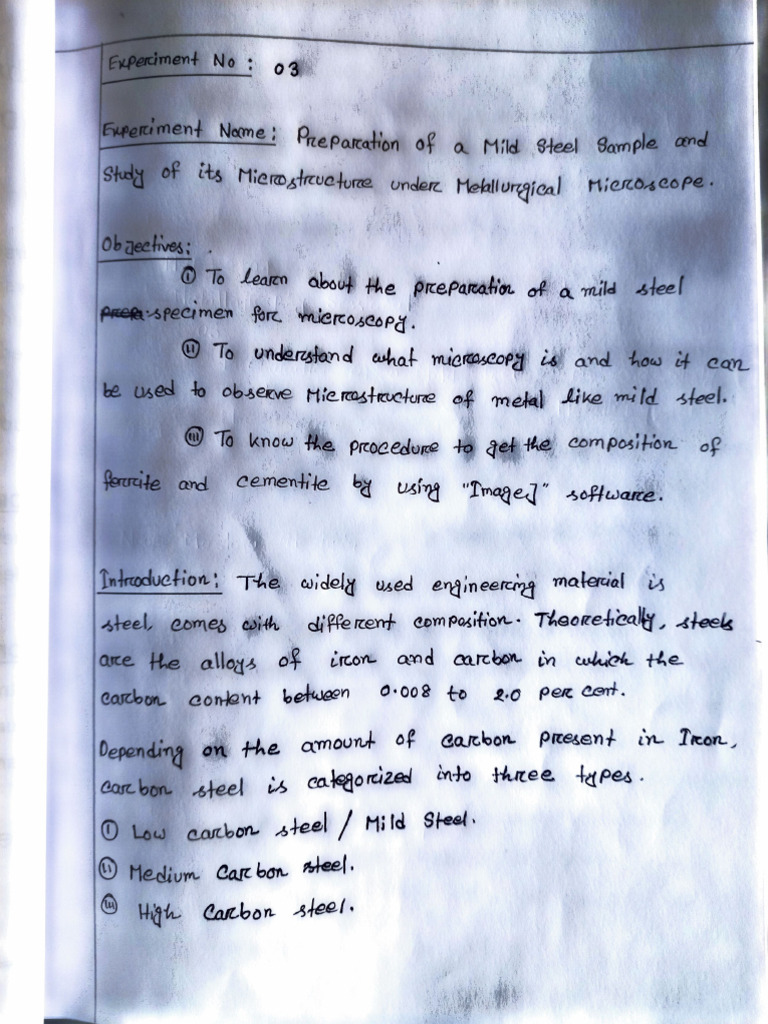 Experiment No : 03
Experiment Name: Preparation of a Mild Steel Sample and
Study of its Microstructure under Metallurgical Microscope.
Objectives:
(i) To learn about the preparation of a mild steel
specimen for microscopy.
(ii) To understand what microscopy is and how it can
be used to observe Microstructure of metal like mild steel.
(iii) To know the procedure to get the composition of
ferrite and cementite by using "ImageJ" software.
Introduction: The widely used engineering material is
steel, comes with different composition. Theoretically, steels
are the alloys of iron and carbon in which the
carbon content between 0.008 to 2.0 per cent.
Depending on the amount of carbon present in Iron,
carbon steel is categorized into three types.
(i) Low carbon steel / Mild Steel.
(ii) Medium Carbon steel.
(iii) High Carbon steel.